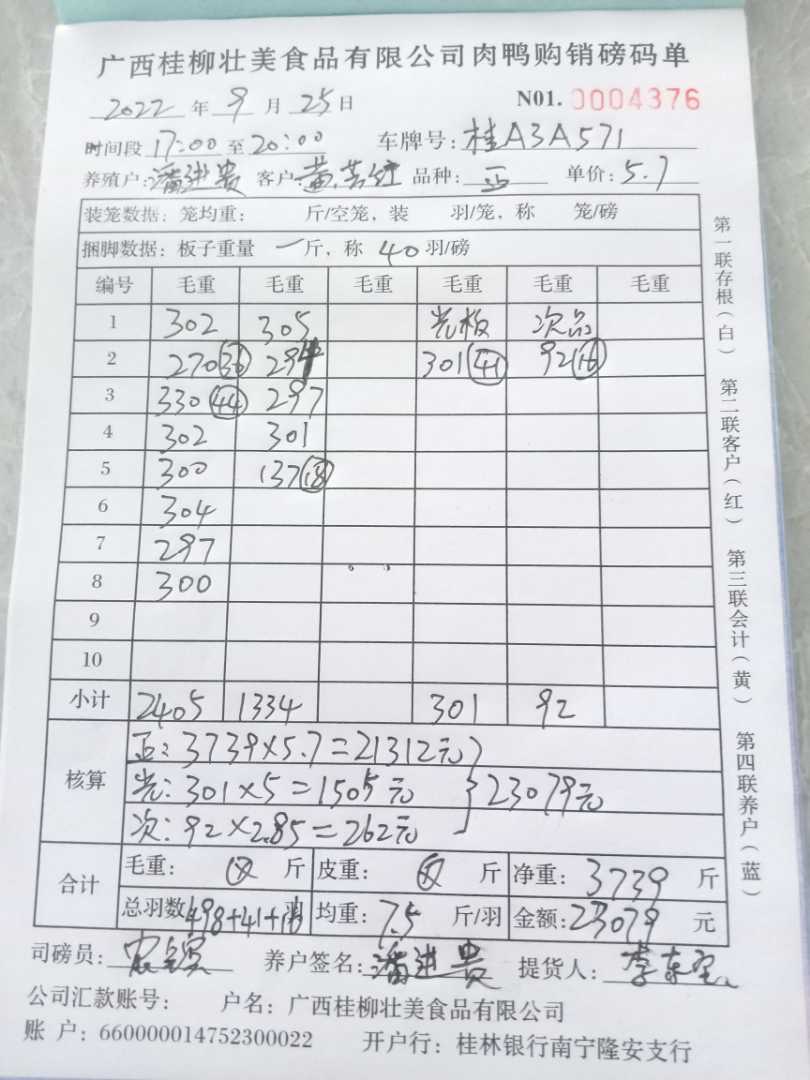 广西桂柳壮美食品有限公司肉鸭购销磅码单
2022 年 9 月 25 日 N01. 0004376
时间段 17:00 至 20:00 车牌号: 桂A3A571
养殖户: 潘进贵 客户: 黄 品种: 正 单价: 5.7
装笼数据: 笼均重: 斤/空笼, 装 羽/笼, 称 笼/磅
捆脚数据: 板子重量 一 斤, 称 40 羽/磅
编号 毛重 毛重 毛重 毛重 毛重 毛重
1 302 305 光板 次品
2 270 (36) 294 301 (41) 92 (16)
3 330 (44) 297
4 302 301
5 300 137 (18)
6 304
7 297
8 300
9
10
小计 2405 1334 301 92
核算 正: 3739×5.7=21312元
光: 301×5=1505元 } 23079元
次: 92×2.85=262元
合计 毛重: 斤 皮重: 斤 净重: 3739 斤
总羽数 498+41+16 羽 均重: 7.5 斤/羽 金额: 23079 元
司磅员: 养户签名: 潘进贵 提货人: 李东
公司汇款账号: 户名: 广西桂柳壮美食品有限公司
账 户: 660000014752300022 开户行: 桂林银行南宁隆安支行
第一联存根(白) 第二联客户(红) 第三联会计(黄) 第四联养户(蓝)